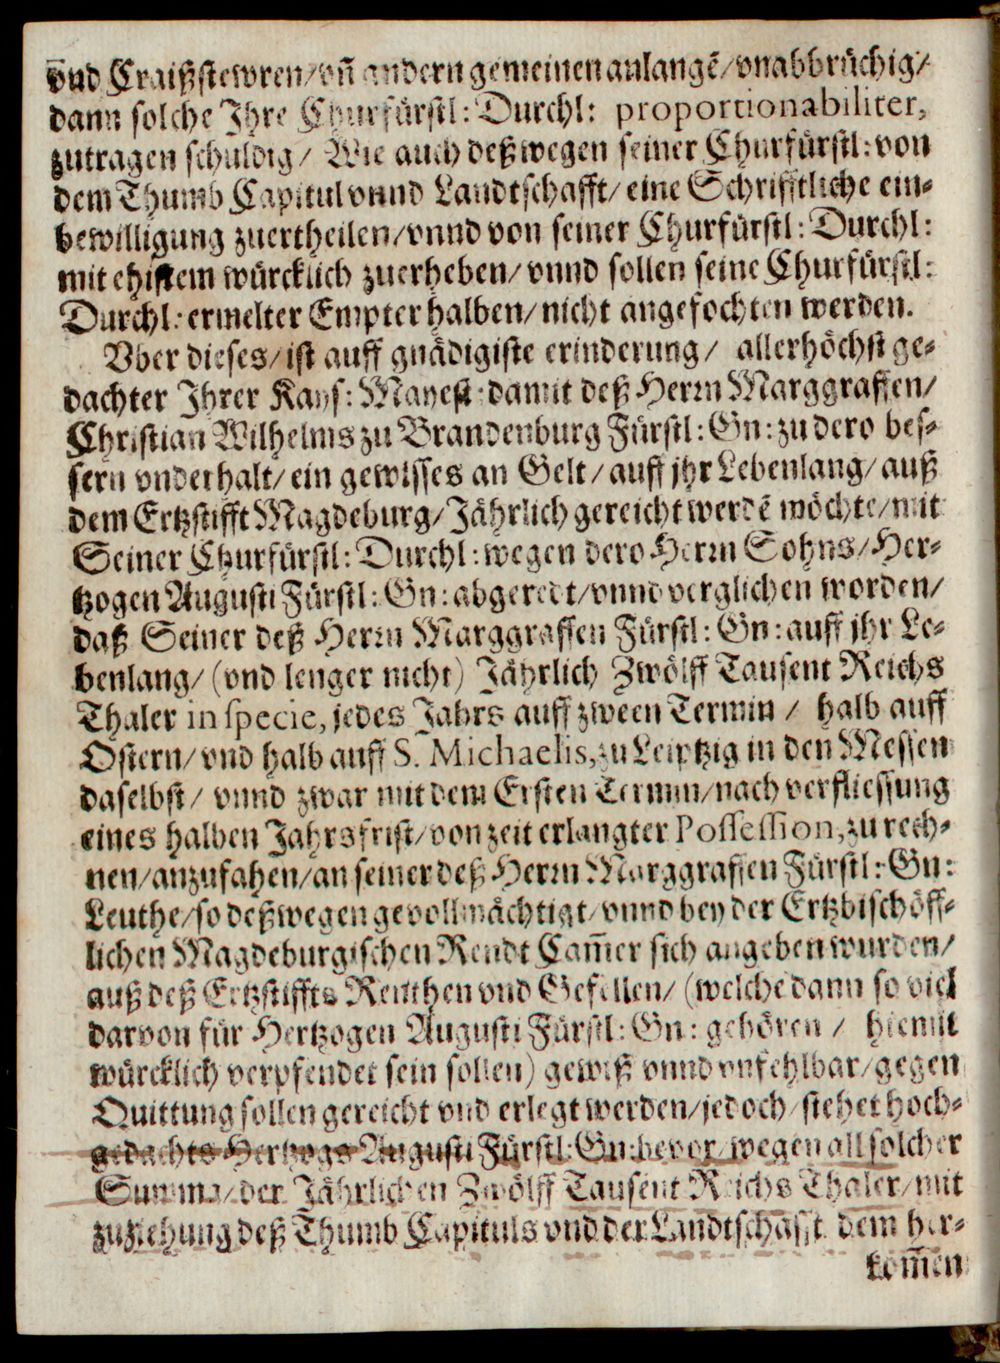 vnd Craißstewren/vn̄ andern gemeinen anlangẽ/vnabbrüchig/
dann solche Ihre Churfürstl: Durchl: proportionabiliter,
zutragen schuldig/ Wie auch deßwegen seiner Churfürstl: von
dem Thumb Capitul vnnd Landtschafft/ eine Schrifftliche ein-
bewilligung zuertheilen/vnnd von seiner Churfürstl: Durchl:
mit ehistem würcklich zuerheben/ vnnd sollen seine Churfürstl:
Durchl: ermelter Empter halben/ nicht angefochten werden.
Vber dieses/ ist auff gnädigiste erinderung/ allerhöchst ge-
dachter Ihrer Kays: Mayest: damit deß Herrn Marggraffen/
Christian Wilhelms zu Brandenburg Fürstl: Gn: zu dero bes-
sern vnderhalt/ ein gewisses an Gelt/ auff jhr Lebenlang/ auß
dem Ertzstifft Magdeburg/ Jährlich gereicht werdẽ möchte/ mit
Seiner Churfürstl: Durchl: wegen dero Herrn Sohns/ Her-
tzogen Augusti Fürstl: Gn: abgeredt/ vnnd verglichen worden/
daß Seiner deß Herrn Marggraffen Fürstl: Gn: auff jhr Le-
benlang/ (vnd lenger nicht) Jährlich Zwölff Tausent Reichs
Thaler in specie, jedes Jahrs auff zween Termin / halb auff
Ostern/ vnd halb auff S. Michaelis, zu Leiptzig in den Messen
daselbst/ vnnd zwar mit dem Ersten Termin/ nach verfliessung
eines halben Jahrsfrist/ von zeit erlangter Possession, zu rech-
nen/ anzufahen/ an seiner deß Herrn Marggraffen Fürstl: Gn:
Leuthe/ so deßwegen gevollmächtigt/ vnnd bey der Ertzbischöff-
lichen Magdeburgischen Rendt Cam̄er sich angeben wurden/
auß deß Ertzstiffts Renthen vnd Gefellen/ (welche dann so viel
darvon für Hertzogen Augusti Fürstl: Gn: gehören / hiemit
würcklich verpfendet sein sollen) gewiß vnnd vnfehlbar/ gegen
Quittung sollen gereicht vnd erlegt werden/ jedoch/ stehet hoch-
gedachts Hertzogs Augusti Fürstl: Gn: bevor/ wegen all solcher
Summa/ der Jährlichen Zwölff Tausent Reichs Thaler/ mit
zuziehung deß Thumb Capituls vnd der Landtschafft dem her-
kom̄en